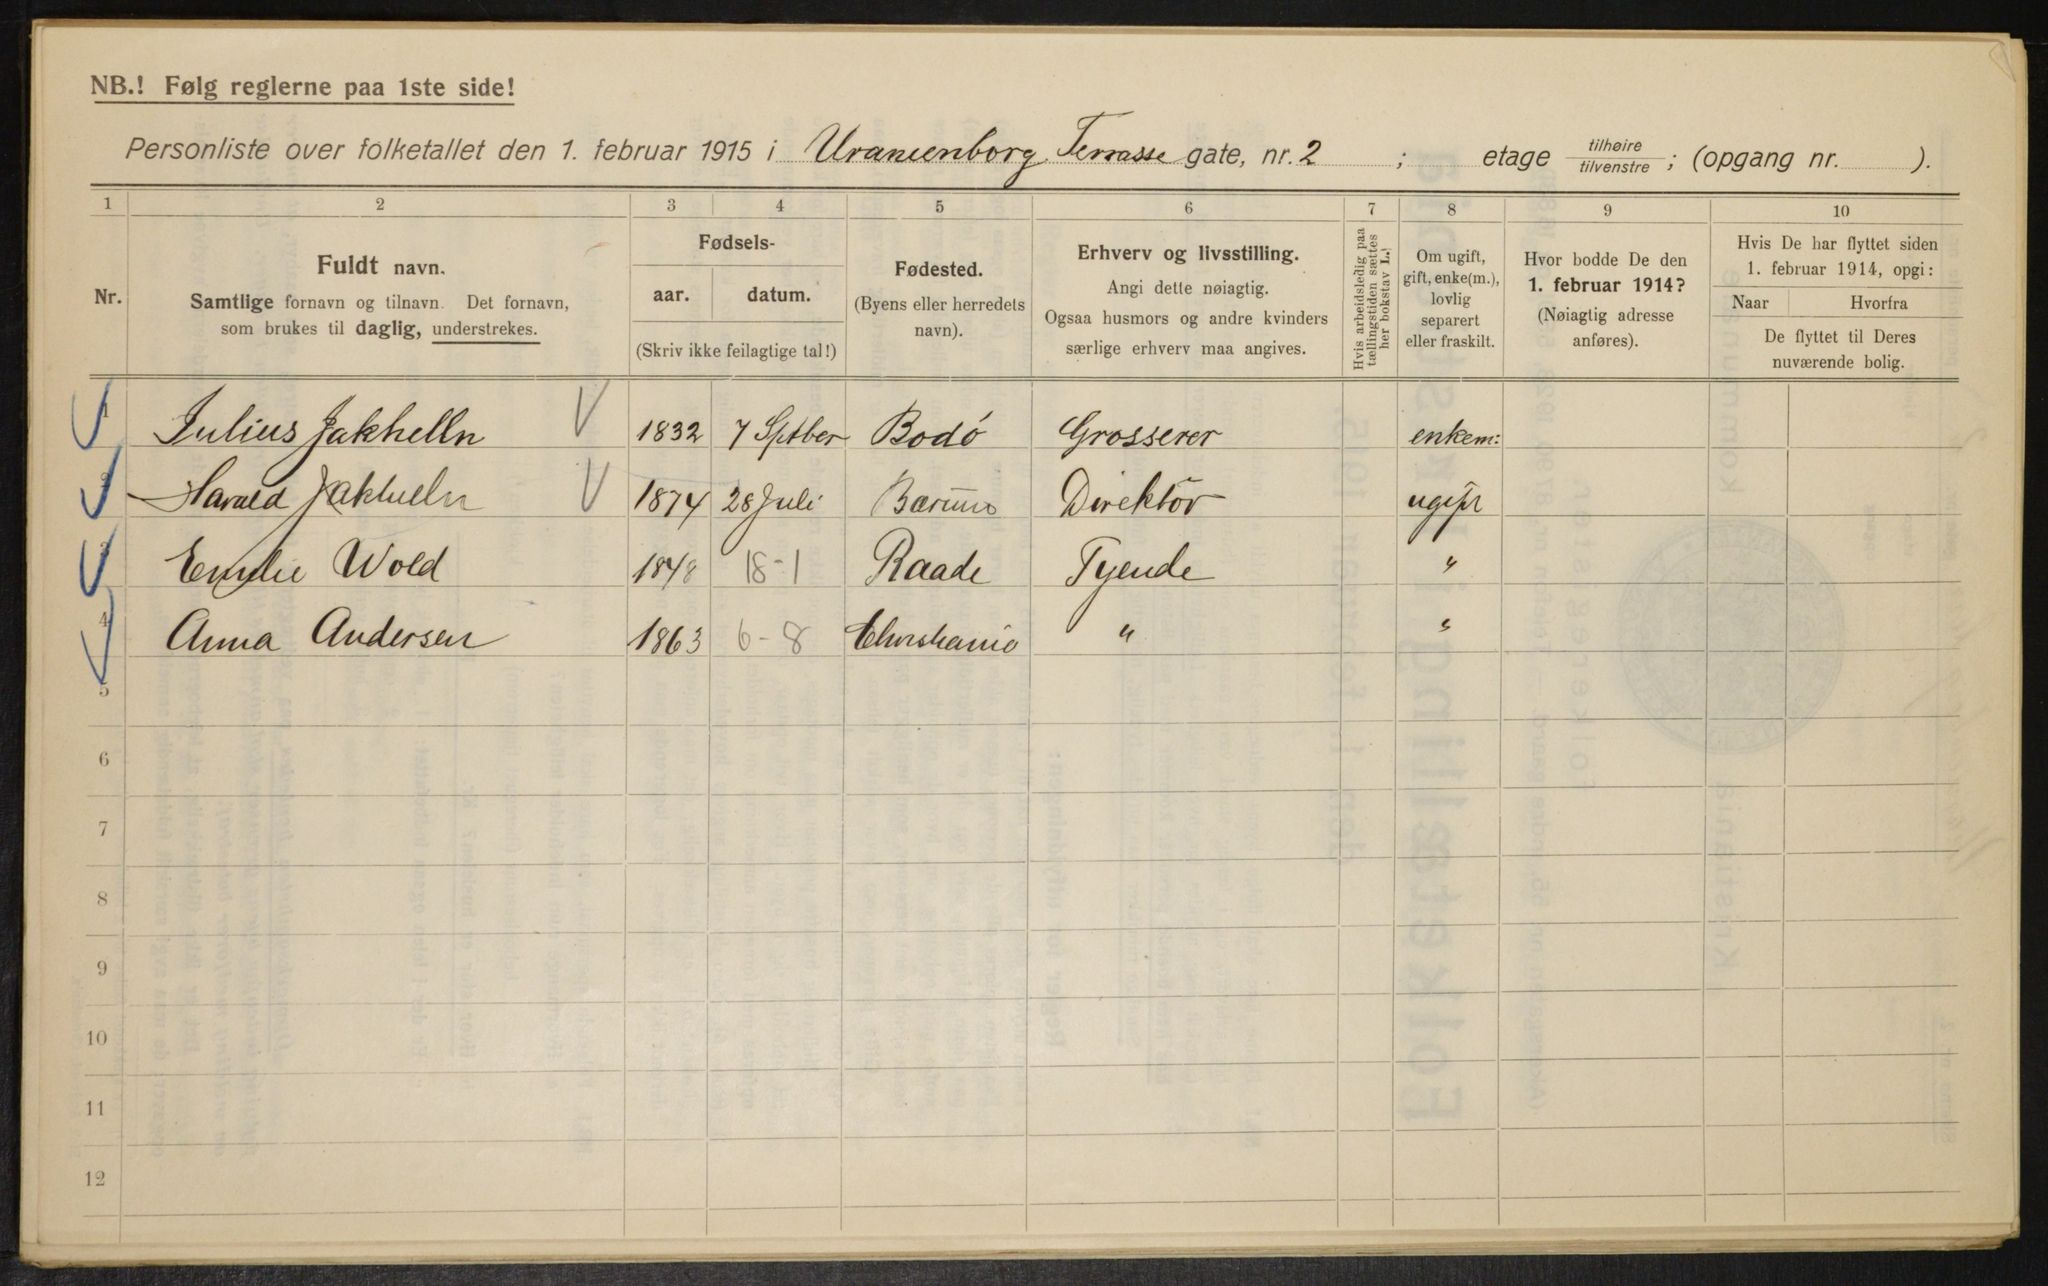 NB.! Følg reglerne paa 1ste side!
Personliste over folketallet den 1. februar 1915 i Uranienborg Terrasse gate, nr. 2 ; etage tilhøire tilvenstre ; (opgang nr. ).
1 2 3 4 5 6 7 8 9 10
Nr.
Fuldt navn.
Samtlige fornavn og tilnavn. Det fornavn,
som brukes til daglig, understrekes.
Fødsels-
aar. datum.
(Skriv ikke feilagtige tal!)
Fødested.
(Byens eller herredets
navn).
Erhverv og livsstilling.
Angi dette nøiagtig.
Ogsaa husmors og andre kvinders
særlige erhverv maa angives.
Hvis arbeidsledig paa
tællingstiden sættes
her bokstav L.!
Om ugift,
gift, enke(m.),
lovlig
separert
eller fraskilt.
Hvor bodde De den
1. februar 1914?
(Nøiagtig adresse
anføres).
Hvis De har flyttet siden
1. februar 1914, opgi:
Naar Hvorfra
De flyttet til Deres
nuværende bolig.
1 Julius Jakhelln 1832 7 Sptber Bodö Grosserer enkem:
2 Harald Jakhelln 1874 28 Juli Bærum Direktör ugift
3 Emilie Wold 1848 18-1 Raade Tjende "
4 Anna Andersen 1863 6-8 Christiania " "
5
6
7
8
9
10
11
12